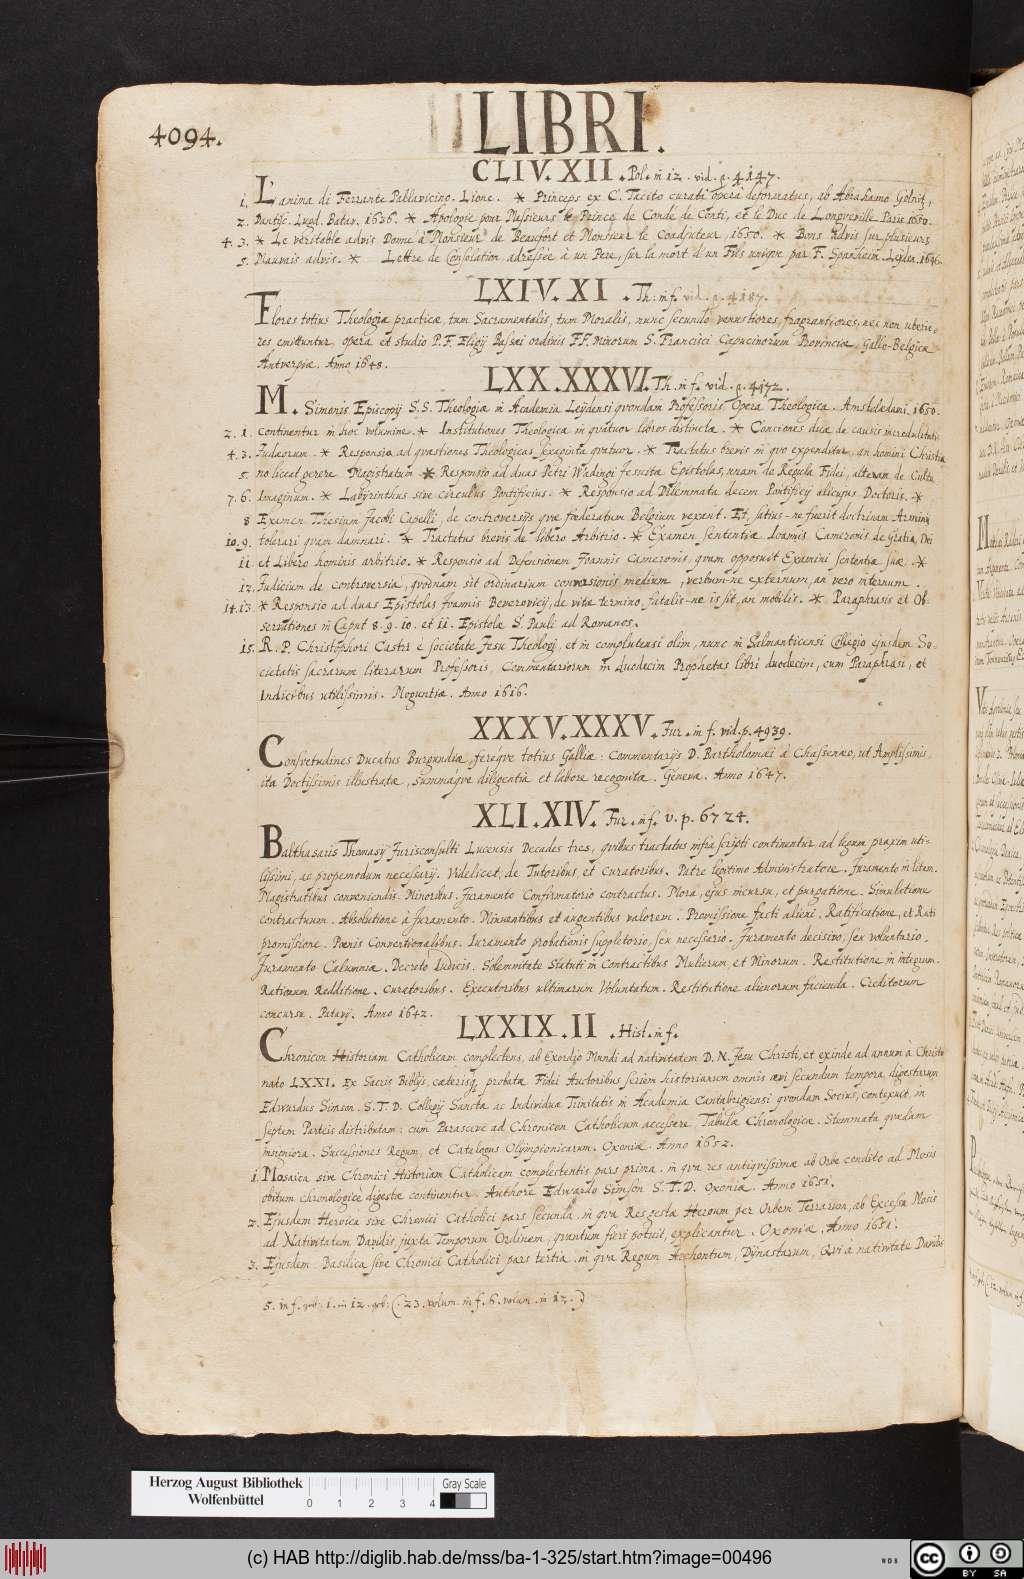 4094.
LIBRI.
CLIV. XII. Pol. in 12. vid. p. 4147.
1. L'anima di Ferrante Pallavicino. Lione. * Princeps ex C. Tacito curatâ opera deformatus, ab Abrahamo Gölnitz,
2. Dantisc. Lugd. Batav. 1636. * Apologie pour Messieurs le Prince de Conde, de Conti, et le Duc de Longueville Paris 1650.
4. 3. * Le veritable advis Donné à Monsieur de Beaufort et Monsieur le Coadjuteur, 1650. * Bons advis sur plusieurs
5. Mauvais advis. * Lettre de Consolation adressée à un Pere, sur la mort d'un Fils unique par F. Spanheim. Leyden. 1646.
LXIV. XI. Th: in f. vid. p. 4187.
Flores totius Theologiæ practicæ, tum Sacramentalis, tum Moralis, nunc secundo venustiores, fragrantiores, nec non uberio-
res emittuntur, opera et studio P. F. Eligij Bassæi ordinis F.F. Minorum S. Francisci Capucinorum Provinciæ, Gallo-Belgicæ
Antverpiæ. Anno 1648.
LXX. XXXVI. Th. in f. vid. p. 4172.
M. Simonis Episcopij S.S. Theologiæ in Academia Leijdensi quondam Professoris Opera Theologica. Amsteladami. 1650.
2. 1. Continentur in hoc volumine. * Institutiones Theologicæ in quatuor libros distinctæ. * Conciones duæ de causis incredulitatis
4. 3. Judæorum. * Responsio ad quæstiones Theologicas sexaginta quatuor. * Tractatus brevis in quo expenditur, an homini Christia
5. no liceat gerere Magistratum * Responsio ad duas Petri Wadingi Jesuitæ Epistolas, unam de Regula Fidei, alteram de Cultu
7. 6. Imaginum. * Labyrinthus sive circulus Pontificius. * Responsio ad Dilemmata decem Pontificij alicujus Doctoris. *
8 Examen Thesium Jacobi Capelli, de controversijs quæ fœderatum Belgium vexant. Et, satius-ne fuerit doctrinam Arminij
10. 9. tolerari quam damnari. * Tractatus brevis de libero Arbitrio. * Examen sententiæ Joannis Cameronis de Gratia Dei
11. et Libero hominis arbitrio. * Responsio ad Defensionem Joannis Cameronis, quam opposuit Examini sententiæ suæ. *
12. Judicium de controversia, quodnam sit ordinarium conversionis medium, verbum-ne externum, an vero internum.
14. 13. * Responsio ad duas Epistolas Joannis Beverovicij, de vitæ termino, fatalis-ne is sit, an mobilis. * Paraphrasis et Ob-
servationes in Caput 8. 9. 10. et 11. Epistolæ S. Pauli ad Romanos.
15. R. P. Christophori Castri è societate Jesu Theologi, et in complutensi olim, nunc in Salmanticensi Collegio ejusdem So-
cietatis sacrarum literarum Professoris, Commentariorum in duodecim Prophetas libri duodecim, cum Paraphrasi, et
Indicibus utilissimis. Moguntiæ. Anno 1616.
XXXV. XXXV. Jur. in f. vid. p. 4939.
Consvetudines Ducatus Burgundiæ, fereque totius Galliæ: Commentarijs D. Bartholomæi à Chassenæo, ut Amplissimis,
ita Doctissimis illustratæ, summaque diligentiâ et labore recognitæ. Genevæ. Anno 1647.
XLI. XIV. Jur. in f. v. p. 6724.
Balthasaris Thomasij Jurisconsulti Lucensis Decades tres, quibus tractatus infra scripti continentur, ad legum praxim uti-
lissimi, ac propemodum necessarij. Videlicet, de Tutoribus, et Curatoribus. Patre legitimo Administratore. Juramento in litem.
Magistratibus conveniendis. Minoribus. Juramento Confirmatorio contractus. Mora, ejus incursu, et purgatione. Simulatione
contractuum. Absolutione à Juramento. Minuentibus et augentibus valorem. Promissione facti alieni. Ratificatione, et Rati
promissione. Pœnis Conventionalibus. Juramento probationis suppletorio, seu necessario. Juramento decisivo, seu voluntario.
Juramento Calumniæ. Decreto Judicis. Solemnitate Statuti in Contractibus Mulierum, et Minorum. Restitutione in integrum.
Rationum Redditione. Curatoribus. Executoribus ultimarum Voluntatum. Restitutione alienorum facienda. Creditorum
concursu. Patavij. Anno 1642.
LXXIX. II. Hist. in f.
Chronicon Historiam Catholicam complectens, ab Exordio Mundi ad nativitatem D. N. Jesu Christi, et exinde ad annum à Christo
nato LXXI. Ex Sacris Biblijs, cæterisq. probatæ Fidei Auctoribus seriem historiarum omnis ævi secundum tempora digestarum
Edvardus Simson. S.T.D. Collegij Sanctæ ac Individuæ Trinitatis in Academia Cantabrigiensi quondam Socius, contexuit, in
septem Parteis distributam: cum Parasceve ad Chronicon Catholicum accessere Tabulæ Chronologicæ. Stemmata quædam
insigniora. Successiones Regum, et Catalogus Olympionicarum. Oxoniæ. Anno 1652.
1. Mosaica sive Chronici Historiam Catholicam complectentis pars prima. in qua res antiquissimæ ab Orbe condito ad Mosis
obitum chronologice digestæ continentur. Authore Edwardo Simson S.T.D. Oxoniæ. Anno 1651.
2. Ejusdem Heroica sive Chronici Catholici pars secunda. in qua Res gestæ Heroum per Orbem Terrarum, ab Excessu Mosis
ad Nativitatem Davidis juxta Temporum Ordinem, quantum fieri potuit, explicantur. Oxoniæ. Anno 1651.
3. Ejusdem. Basilica sive Chronici Catholici pars tertia. in qua Regum Archontum, Dynastarum, Qui à nativitate Davidis
5. in f. 1. in 12. (. 23. volum. in f. 6. volum. in 12.)
Herzog August Bibliothek
Wolfenbüttel
0 1 2 3 4
Gray Scale
(c) HAB http://diglib.hab.de/mss/ba-1-325/start.htm?image=00496
WDB
cc BY SA